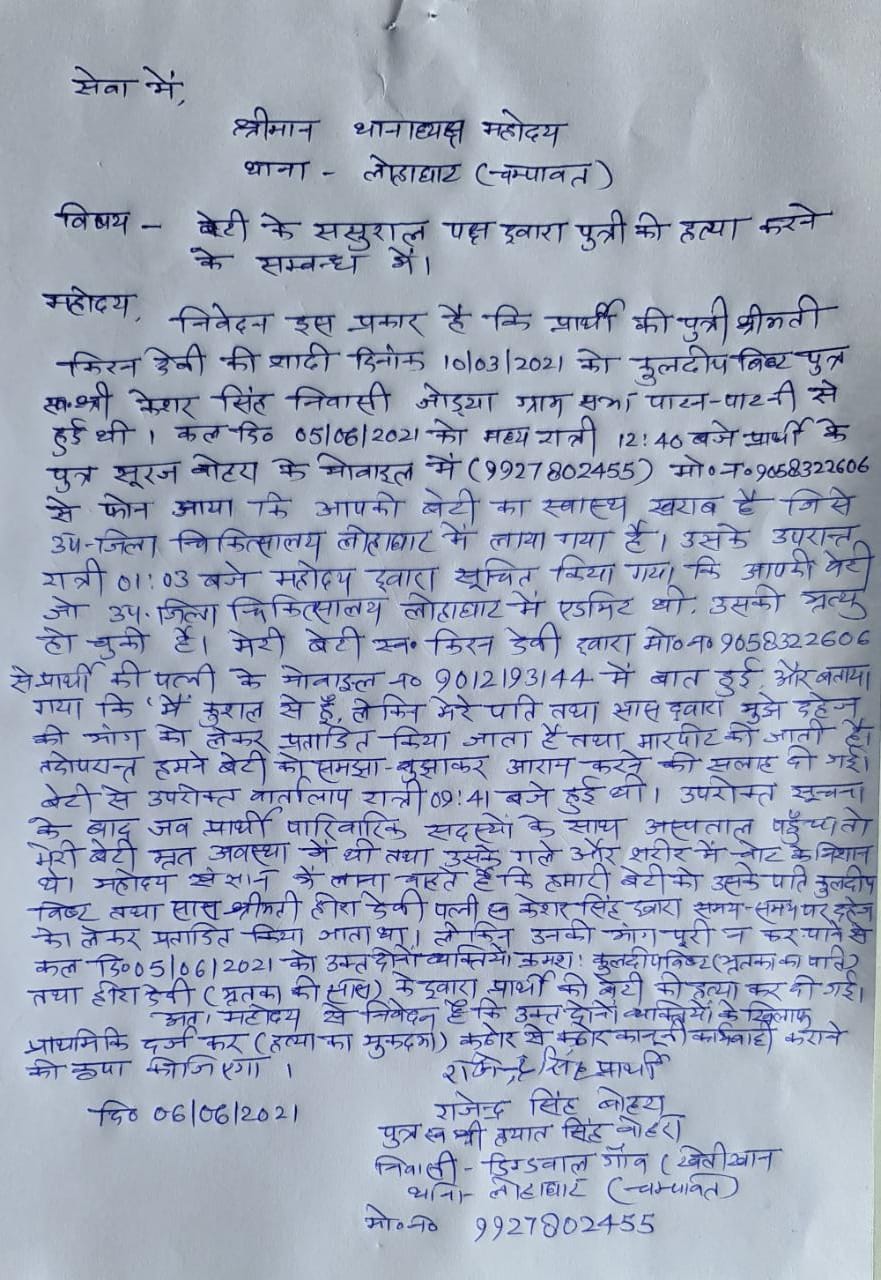 सेवा में,
श्रीमान थानाध्यक्ष महोदय
थाना - लोहाघाट (चम्पावत)
विषय - बेटी के ससुराल पक्ष द्वारा पुत्री की हत्या करने
के सम्बन्ध में।
महोदय,
निवेदन इस प्रकार है कि प्रार्थी की पुत्री श्रीमती
किरन देवी की शादी दिनांक 10/03/2021 को कुलदीप बिष्ट पुत्र
स्व० श्री केशर सिंह निवासी जोड्या ग्राम सभा पाटन-पाटनी से
हुई थी। कल दि० 05/06/2021 को मध्य रात्री 12:40 बजे प्रार्थी के
पुत्र सूरज बोहरा के मोबाइल में (9927802455) मो०न० 9058322606
से फोन आया कि आपकी बेटी का स्वास्थ्य खराब है जिसे
उप-जिला चिकित्सालय लोहाघाट में लाया गया है। उसके उपरान्त
रात्री 01:03 बजे महोदय द्वारा सूचित किया गया कि आपकी बेटी
जो उप-जिला चिकित्सालय लोहाघाट में एडमिट थी, उसकी मृत्यु
हो चुकी है। मेरी बेटी स्व० किरन देवी द्वारा मो०न० 9058322606
से प्रार्थी की पत्नी के मोबाइल न० 9012193144 में बात हुई और बताया
गया कि 'मैं' कुशल से हूँ, लेकिन मेरे पति तथा सास द्वारा मुझे दहेज
की मांग को लेकर प्रताडित किया जाता है तथा मारपीट की जाती है।
तदोपरान्त हमने बेटी को समझा-बुझाकर आराम करने की सलाह दी गई।
बेटी से उपरोक्त वार्तालाप रात्री 09:41 बजे हुई थी। उपरोक्त सूचना
के बाद जब प्रार्थी पारिवारिक सदस्यों के साथ अस्पताल पहुँचा तो
मेरी बेटी मृत अवस्था में थी तथा उसके गले और शरीर में चोट के निशान
थे। महोदय संज्ञान में लाना चाहते हैं कि हमारी बेटी को उसके पति कुलदीप
बिष्ट तथा सास श्रीमती हीरा देवी पत्नी स्व केशर सिंह द्वारा समय-समय पर दहेज
को लेकर प्रताडित किया जाता था। लेकिन उनकी मांग पूरी न कर पाने से
कल दि० 05/06/2021 को उक्त दोनों व्यक्तियों क्रमश: कुलदीप बिष्ट (मृतका का पति)
तथा हीरा देवी (मृतका की सास) के द्वारा प्रार्थी की बेटी की हत्या कर दी गई।
अत: महोदय से निवेदन है कि उक्त दोनों व्यक्तियों के खिलाफ
प्राथमिकि दर्ज कर (हत्या का मुकदमा) कठोर से कठोर कानूनी कार्यवाही कराने
की कृपा कीजिएगा।
राजेन्द्र सिंह प्रार्थी
दि० 06/06/2021
राजेन्द्र सिंह बोहरा
पुत्र स्व श्री हयात सिंह बोहरा
निवासी - डिण्डवाल गाँव (खेतीखान
थाना - लोहाघाट (चम्पावत)
मो०न० 9927802455